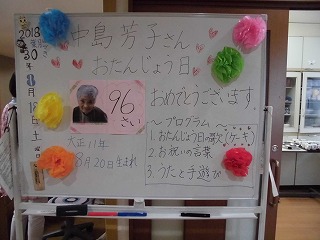 2018
30
年
8
月
18
日
土
中島芳子さん
おたんじょう日
おめでとうございます。
96
さい
大正11年
8月20日生まれ
〜プログラム
1.おたんじょう日の歌(ケーキ)
2.お祝いの言葉
3.うたと手遊び